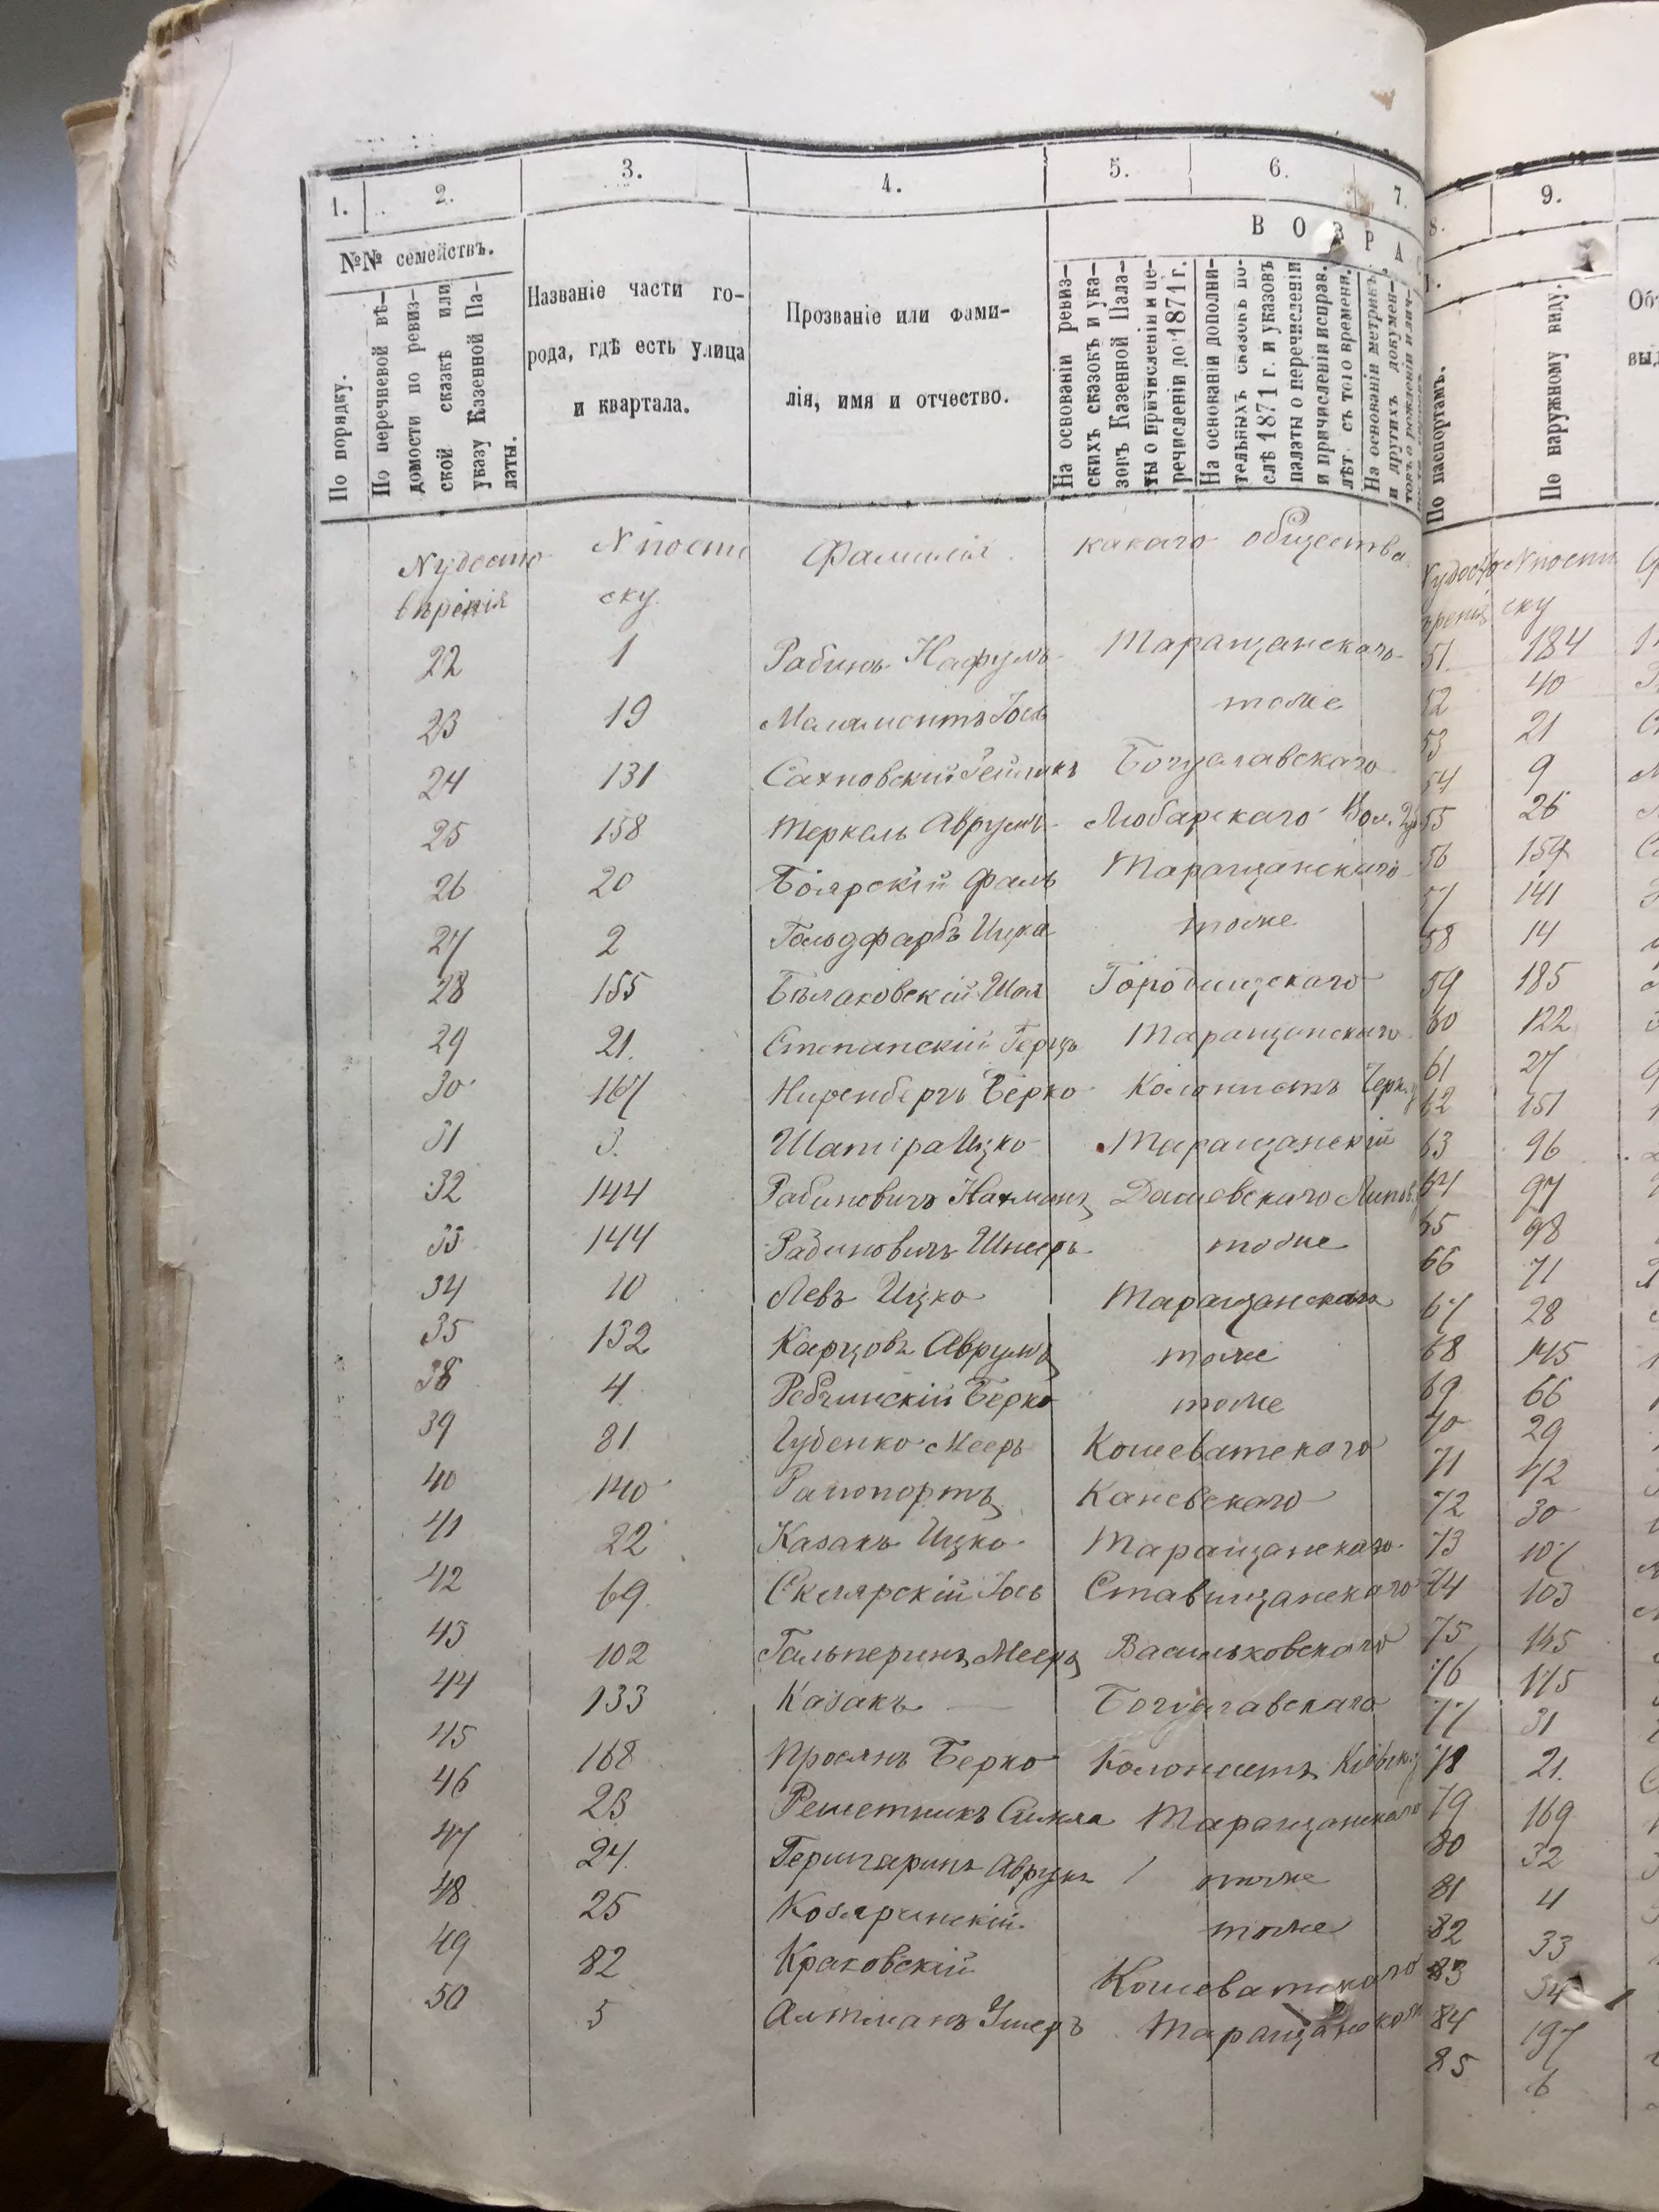 1. 2. 3. 4. 5. 6. 7.
№№ семействъ.
По порядку.
По перечневой вѣ-
домости по ревиз-
ской сказкѣ или
указу Казенной Па-
латы.
Названіе части го-
рода, гдѣ есть улица
и квартала.
Прозваніе или фами-
лія, имя и отчество.
ВОЗРА
На основаніи ревиз-
скихъ сказокъ и ука-
зовъ Казенной Пала-
ты о причисленіи и пе-
речисленіи до 1871 г.
На основаніи дополни-
тельныхъ сказокъ по-
слѣ 1871 г. и указовъ
палаты о перечисленіи
и причисленіи исправ.
лѣт. съ того времени.
На основаніи метрикъ
и другихъ докумен-
товъ о рожденіи и лич-
N удосто N по спи Фамилія. какаго общества
вѣренія ску.
22 1 Рабинъ Нафулъ Таращанскаго
23 19 Маламонтъ Іось тоже
24 131 Сахновскій Богуславскаго
25 158 Меркель Аврумъ Любарскаго Вол.
26 20 Боярскій Таращанскаго
27 2 Гольдфарбъ Ицка тоже
28 155 Бѣлаковскій Шоя Городищскаго
29 21. Степанскій Герцъ Таращанскаго
30 167 Ниренбергъ Берко Колонистъ Черк.
31 3. Шапира Ицко Таращанскій
32 144 Рабиновичъ Нахманъ Дашевскаго Липов.
33 144 Рабиновичъ Шмеръ тоже
34 10 Левъ Ицко Таращанскаго
35 132 Карцовъ Аврумъ тоже
38 4 Ребчинскій Берко тоже
39 81 Губенко Мееръ Кошеватскаго
40 140 Рапопортъ Каневскаго
41 22 Казакъ Ицко Таращанскаго
42 69. Склярскій Іось Ставищанскаго
43 102 Гальперинъ Мееръ Васильковскаго
44 133 Казакъ — Богуславскаго
45 168 Проянъ Берко Колонистъ Кіевск.
46 23 Решетникъ Таращанскаго
47 24. Аврумъ тоже
48 25 Козяринскій тоже
49 82 Краковскій Кошеватскаго
50 5 Алтманъ Ушеръ Таращанскаго
8. 9.
По паспортамъ.
По наружному виду.
N удосто N по спи
вренія ску
51. 184
52 40
53 21
54 9
55 26
56 154
57 141
58 14
59 185
60 122
61 27
62 151
63 96
64 97
65 98
66 71
67 28
68 145
69 66
70 29
71 42
72 30
73 107
74 103
75 145
76 175
77 31
78 21.
79 169
80 32
81 4
82 33
83 34
84 197
85 6